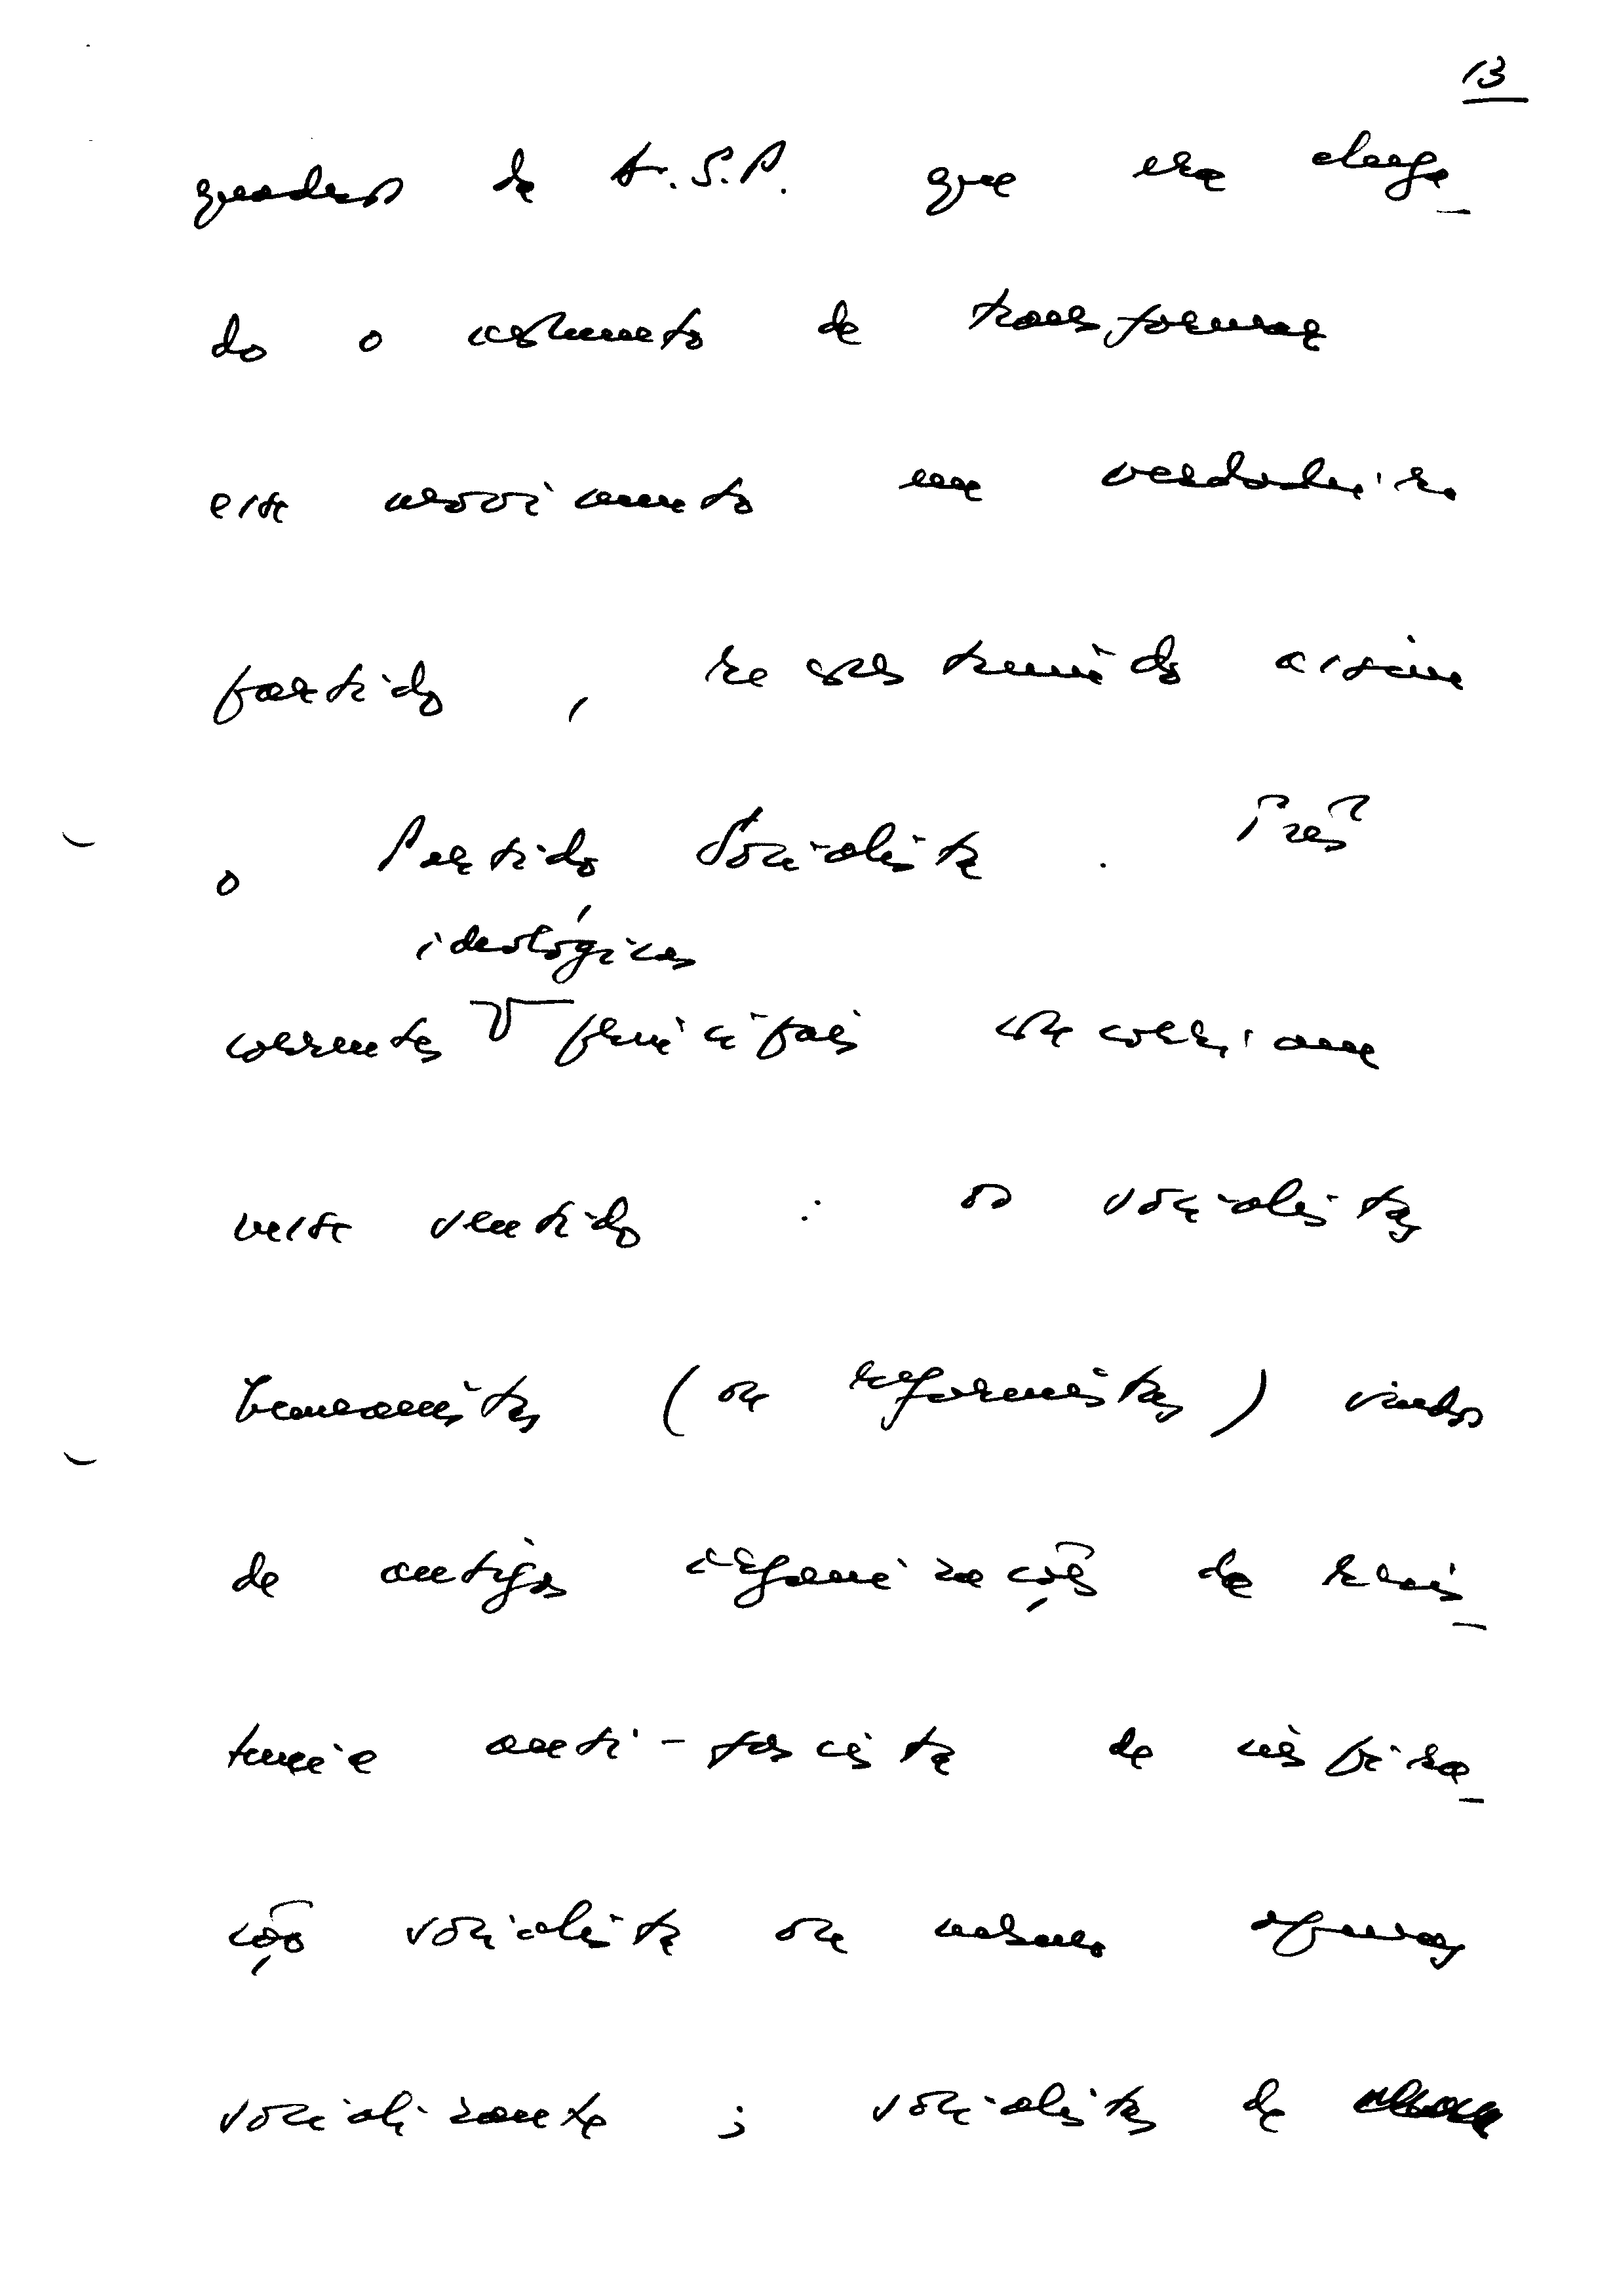 13
quadros da A.S.P. que era chega-
do o momento de transformar
esse movimento em verdadeiro
partido, reconstruindo assim
o Partido Socialista. Três
ideológicas
correntes V principais concorriam
nesse sentido: os socialistas
humanistas (ou reformistas) vindos
de antigas organizações da resis-
tência anti-fascista de inspira-
ção socialista ou mesmo apenas
socializante; socialistas de